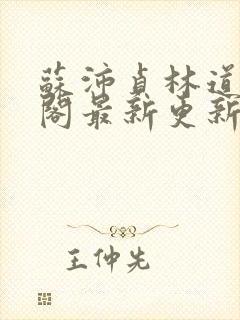 蘇沛貞林道
閣最新更新
王仲先